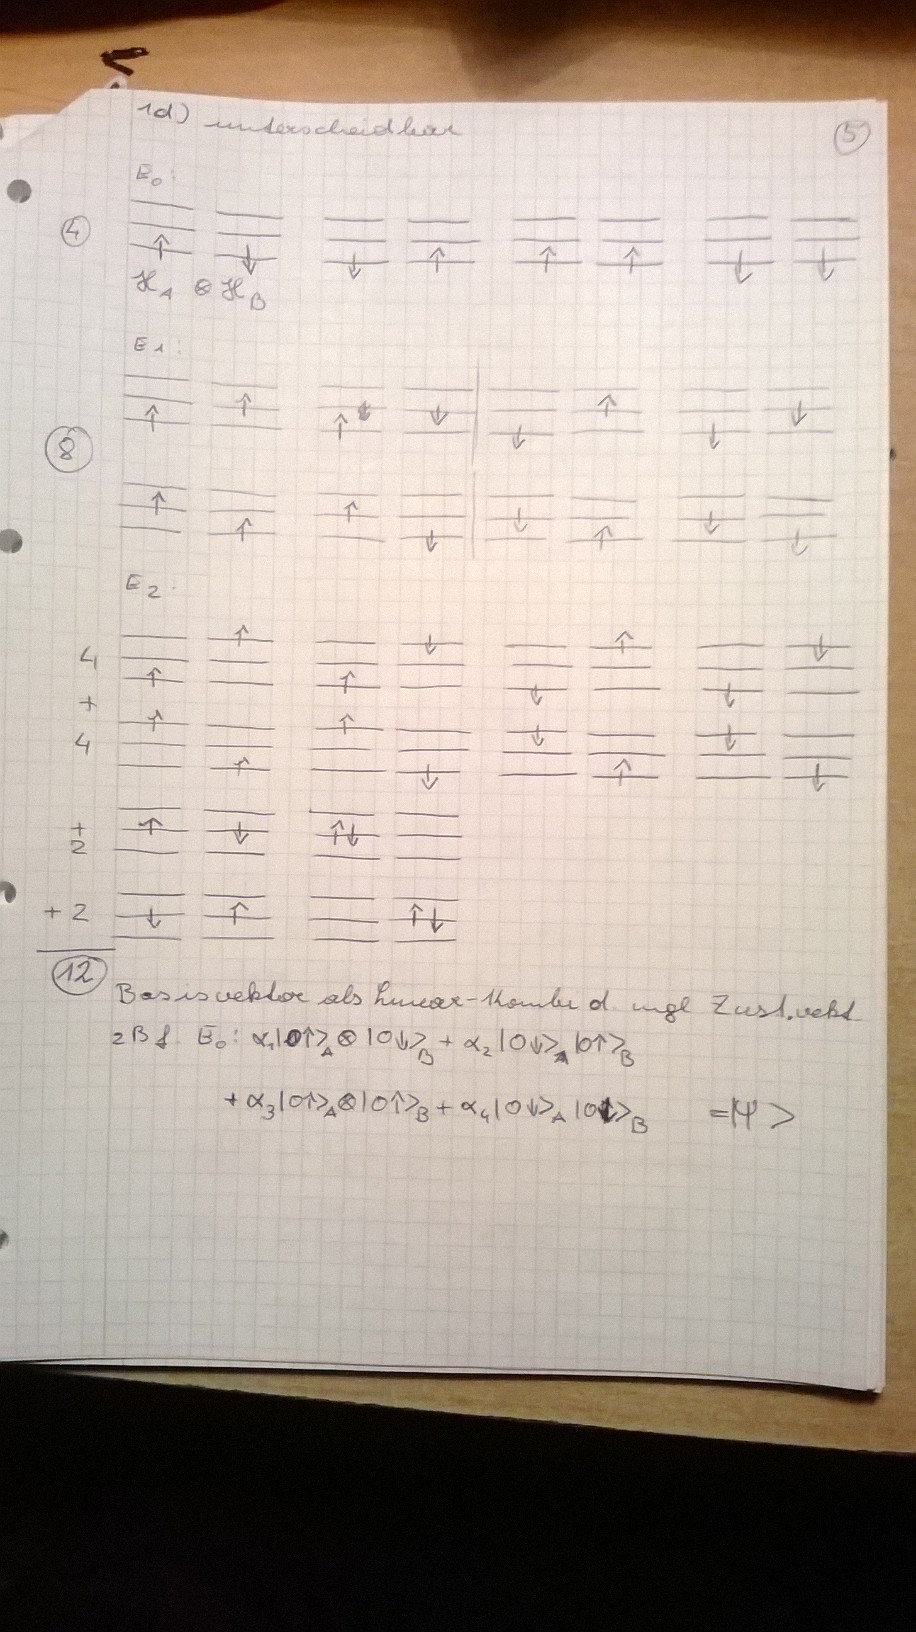 1d) unterscheidbar
5
E₀:
4
↑ ↓ ↓ ↑ ↑ ↑ ↓ ↓
ℋ_A ⊗ ℋ_B
E1:
↑ ↑ ↑ ↓ ↓ ↑ ↓ ↓
8
↑ ↑ ↑ ↓ ↓ ↑ ↓ ↓
E₂:
4 ↑ ↑ ↑ ↓ ↓ ↑ ↓ ↓
+
4 ↑ ↑ ↑ ↓ ↓ ↑ ↓ ↓
+ 2 ↑ ↓ ↑↓
+ 2 ↓ ↑ ↑↓
12
Basisvektor als Linear-Kombi d. mgl Zust.vekt
zB f. E₀: α₁|0↑>_A ⊗ |0↓>_B + α₂|0↓>_A |0↑>_B
+ α₃|0↑>_A ⊗ |0↑>_B + α₄|0↓>_A |0↓>_B = |Ψ>